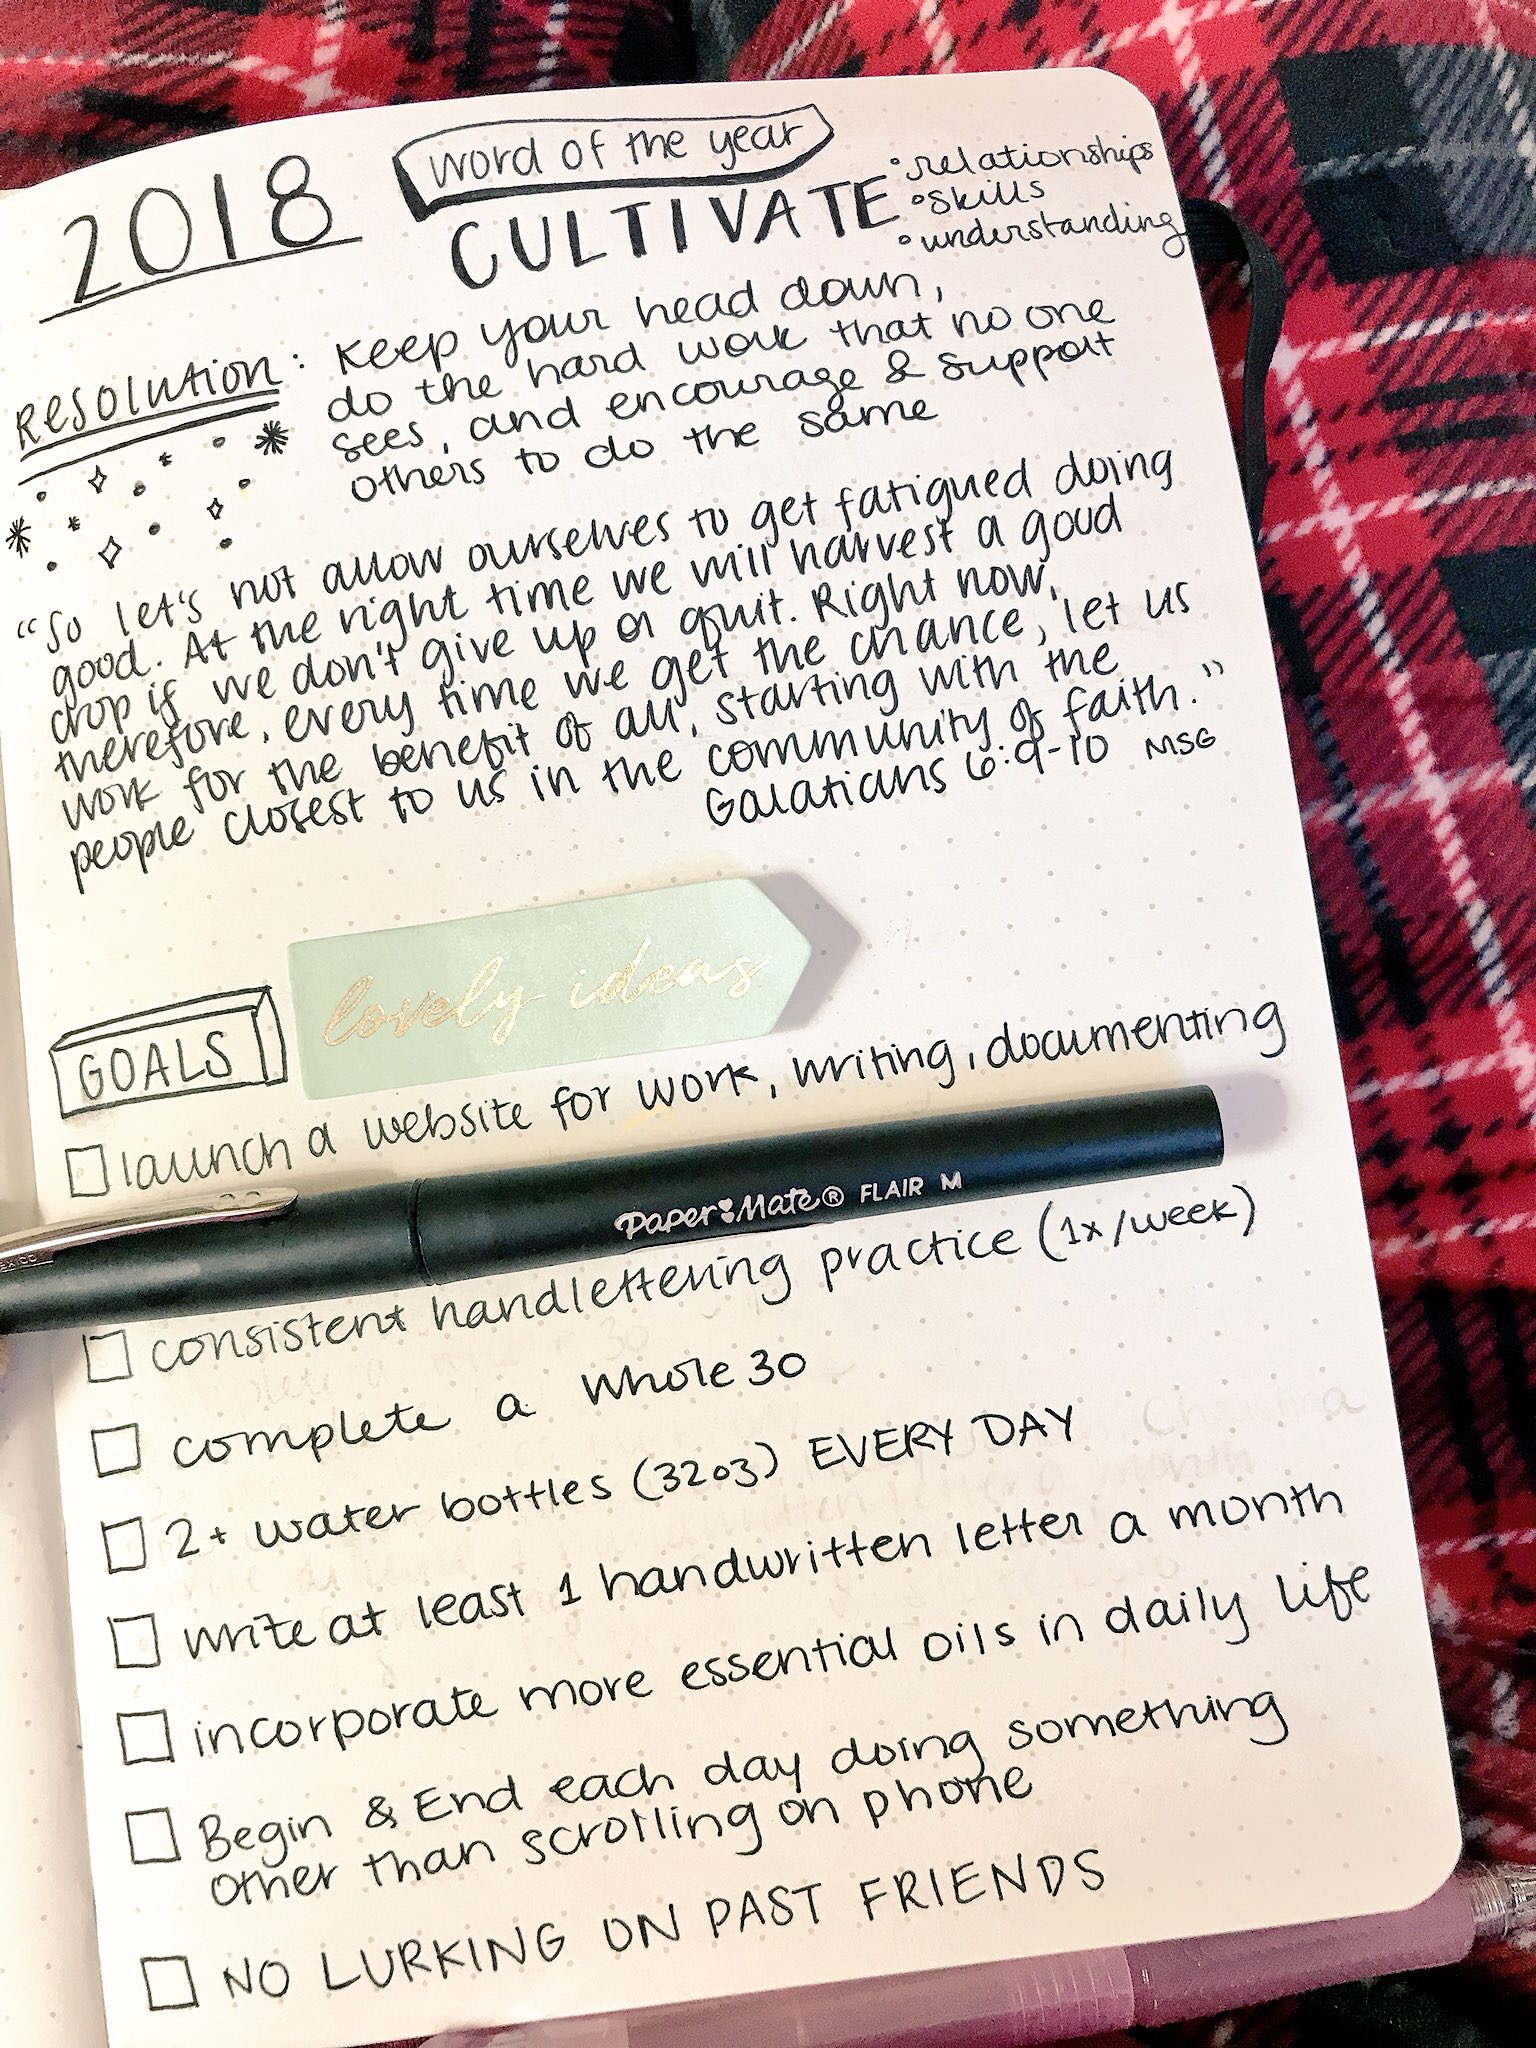 2018
word of the year
CULTIVATE
• relationships
• skills
• understanding
RESOLUTION: Keep your head down,
do the hard work that no one
sees, and encourage & support
others to do the same
“So let's not allow ourselves to get fatigued doing
good. At the right time we will harvest a good
crop if we don't give up or quit. Right now,
therefore, every time we get the chance, let us
work for the benefit of all, starting with the
people closest to us in the community of faith.”
Galatians 6:9-10 MSG
lovely ideas
GOALS
launch a website for work, writing, documenting
Paper Mate® FLAIR M
consistent handlettering practice (1x/week)
complete a Whole 30
2+ water bottles (32oz) EVERY DAY
write at least 1 handwritten letter a month
incorporate more essential oils in daily life
Begin & End each day doing something
other than scrolling on phone
NO LURKING ON PAST FRIENDS